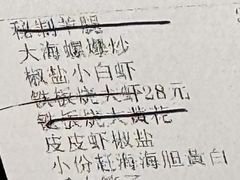 秘制羊腿
大海螺爆炒
椒盐小白虾
铁板烧大虾28元
铁板烧大黄花
皮皮虾椒盐
小份赶海海胆黄白